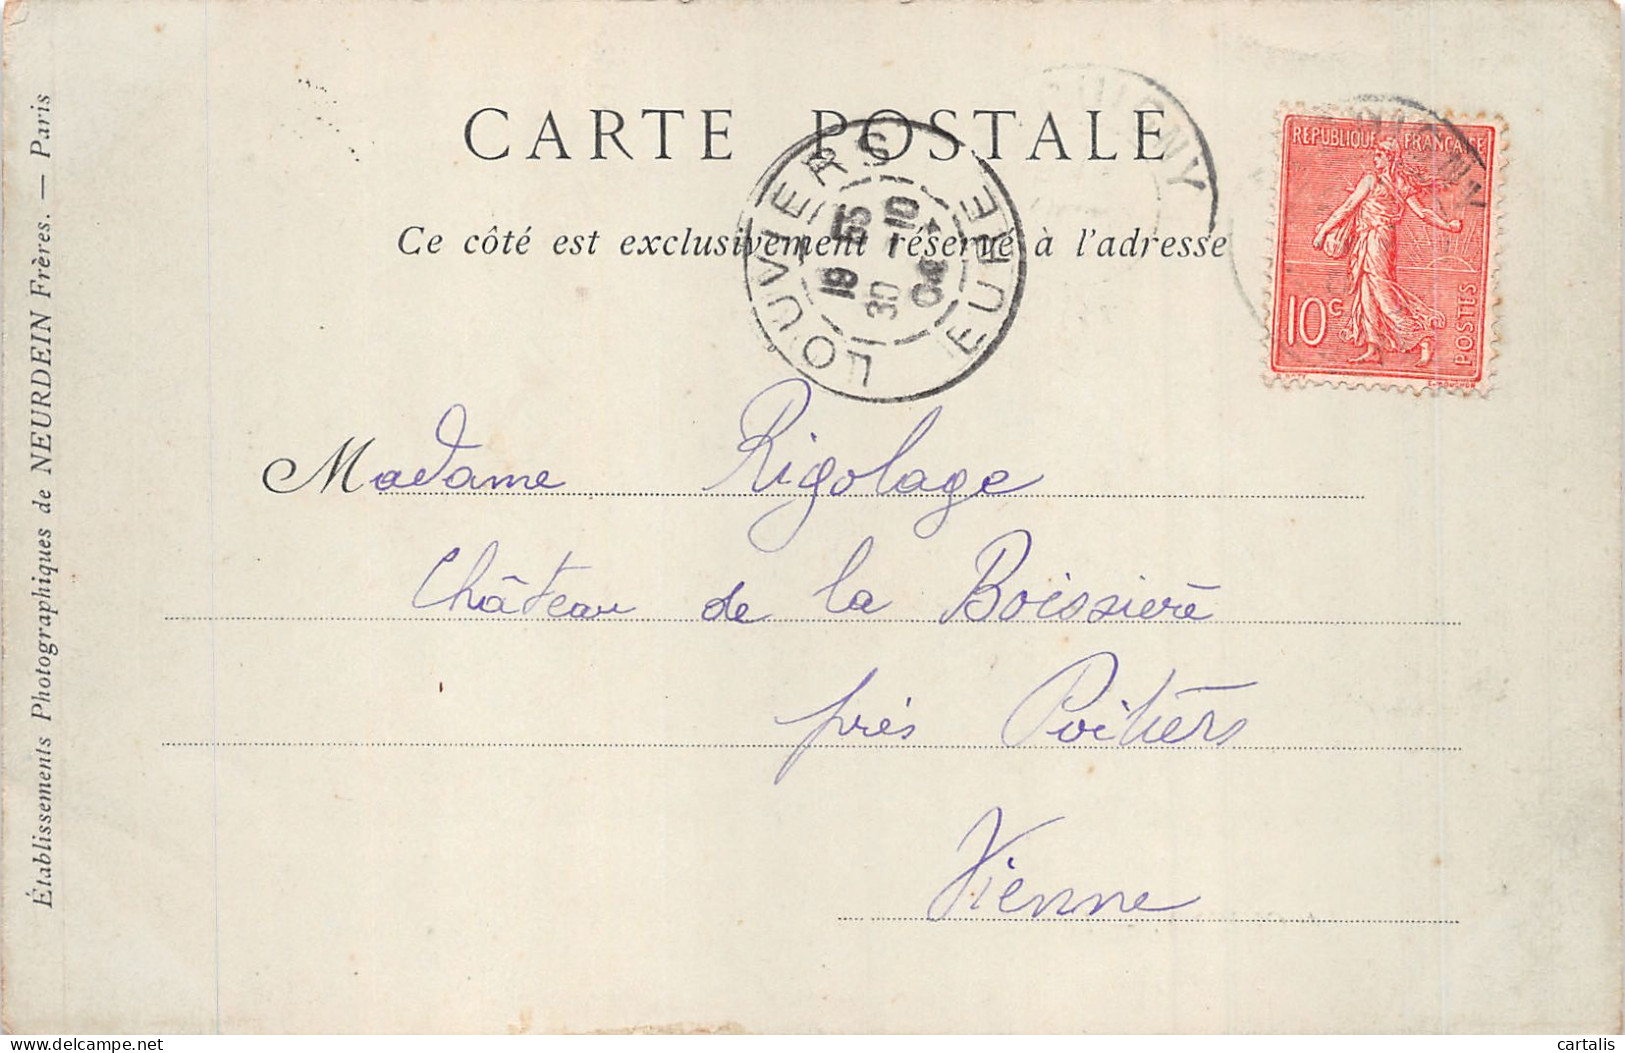 CARTE POSTALE
Ce côté est exclusivement réservé à l'adresse
LOUVIERS
EURE
19 35
30 -10
04
REPUBLIQUE FRANÇAISE
10 c
POSTES
Madame Rigolage
Château de la Boissière
près Poitiers
Vienne
Établissements Photographiques de NEURDEIN Frères. — Paris
delcampe.net
cartalis